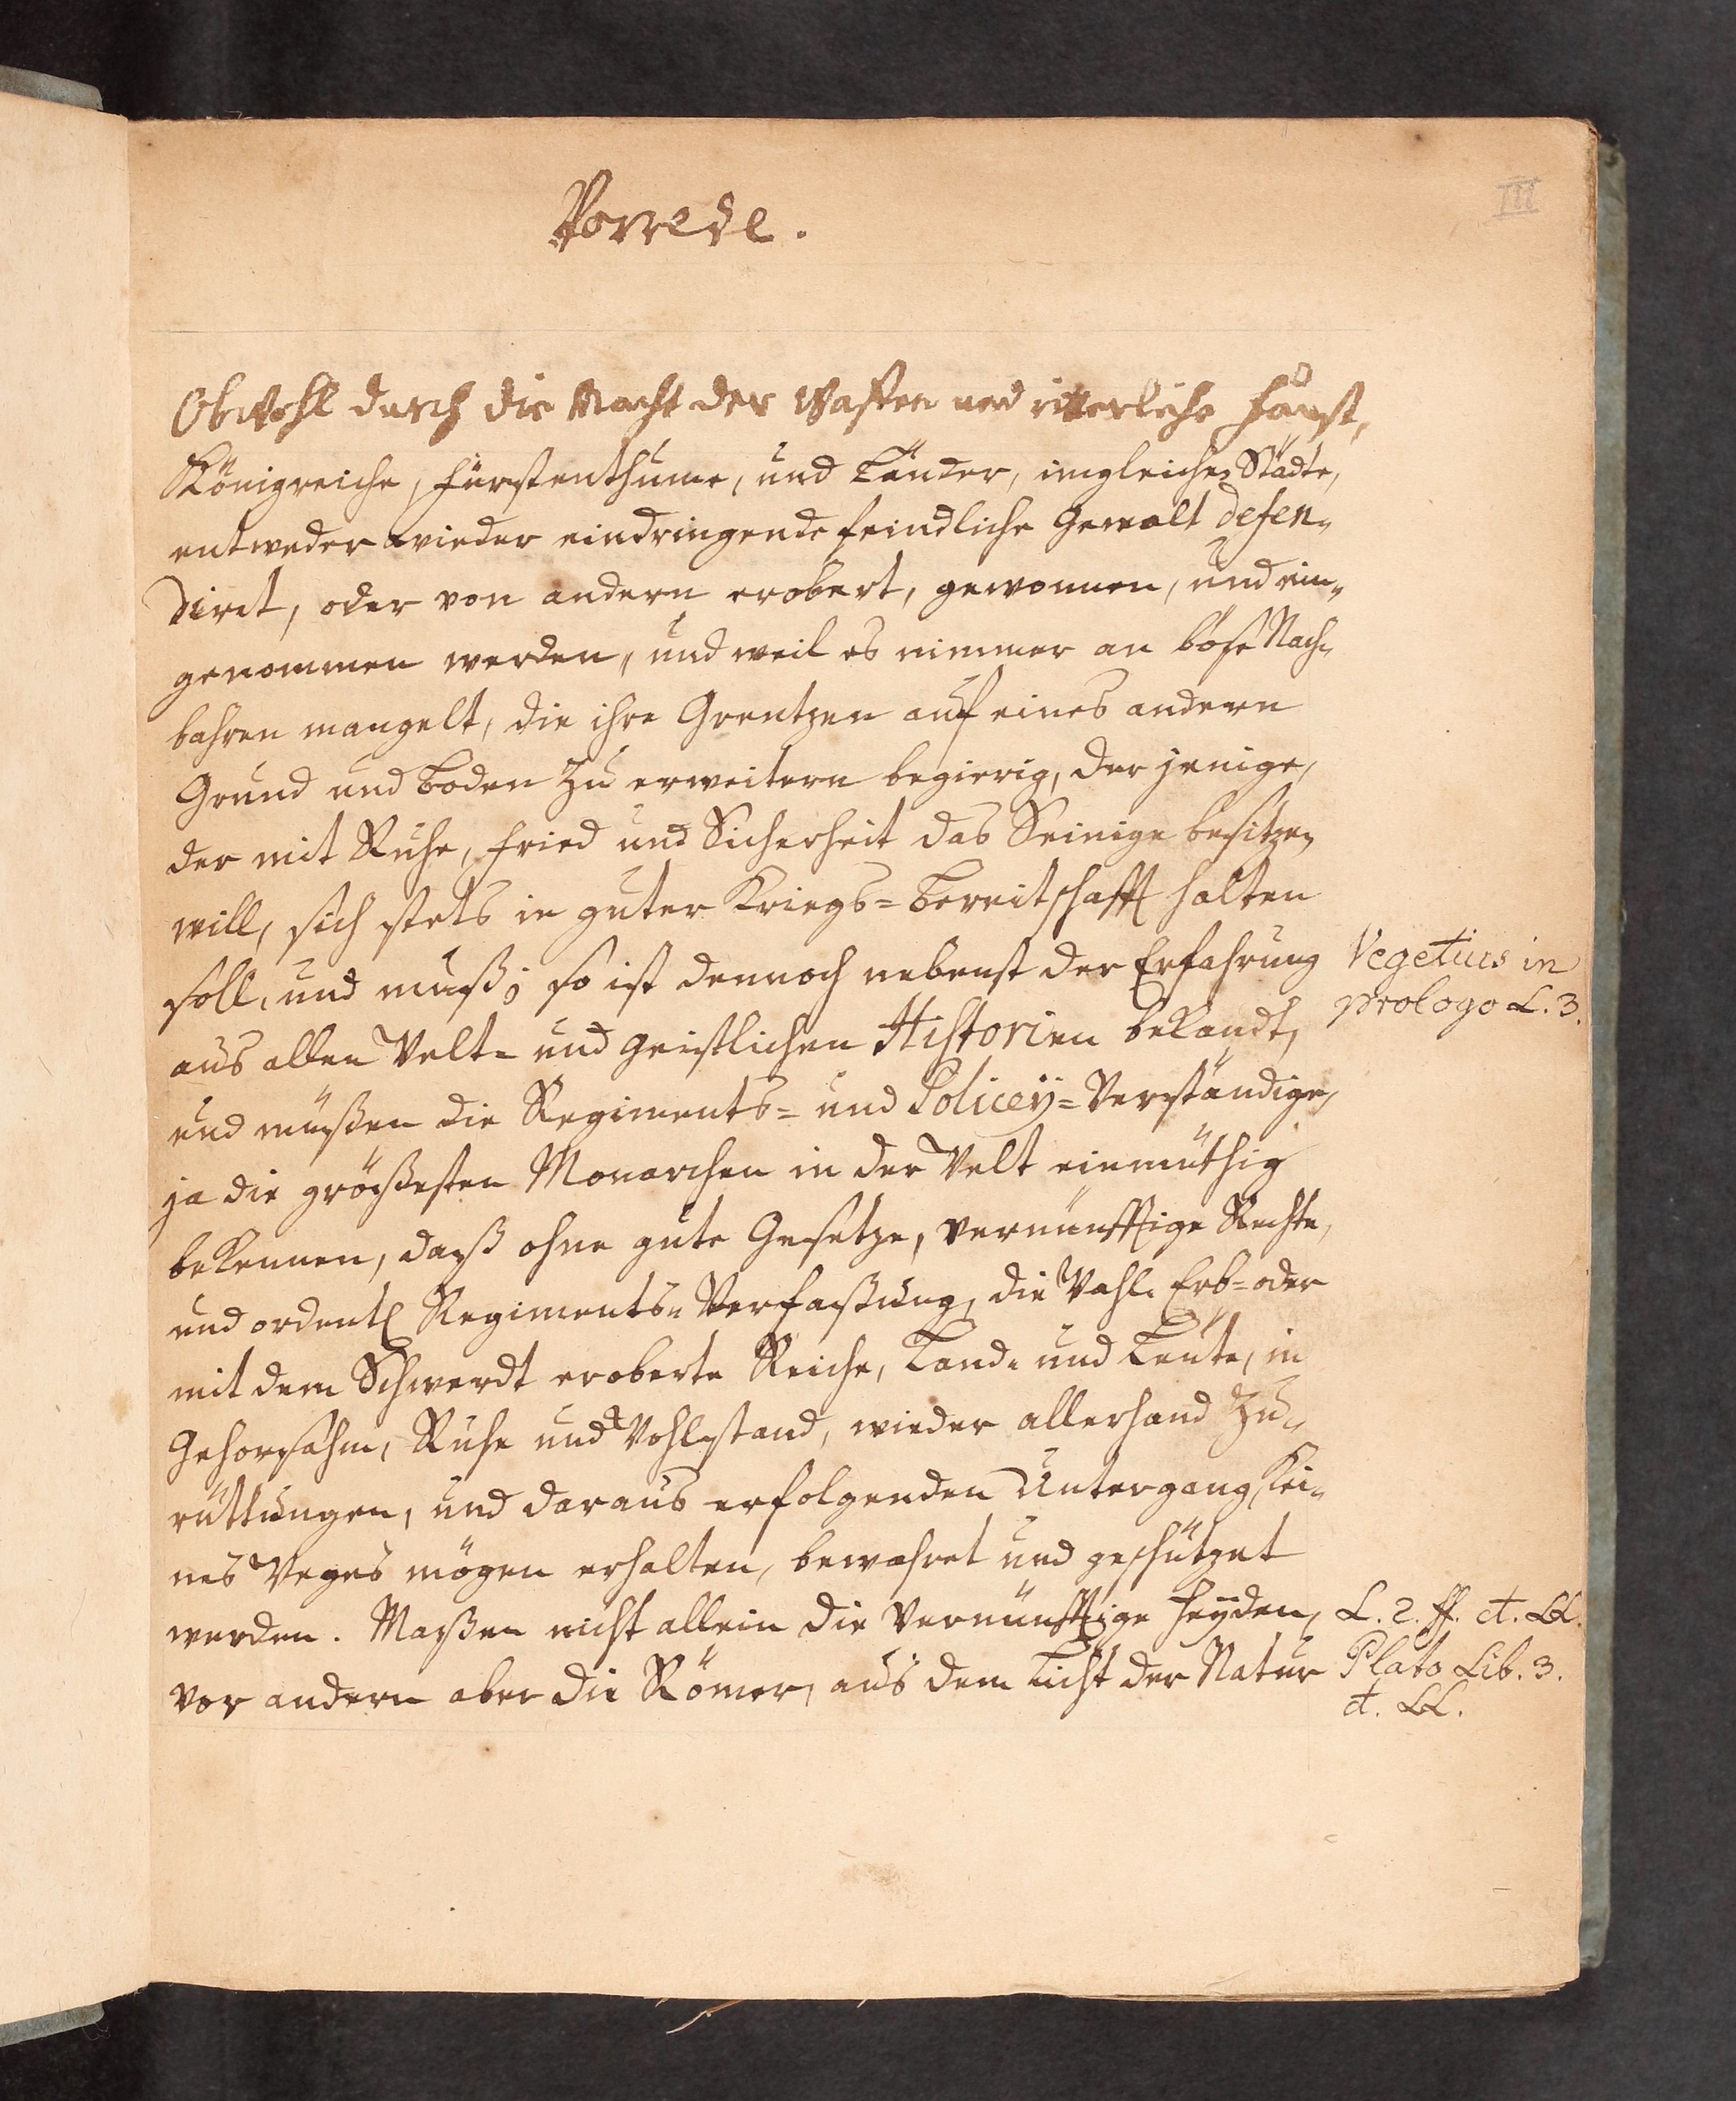 III
Vorrede.
Obwohl durch die Macht der Waffen und ritterliche Faust,
Königreiche, Fürstenthume, und Länder, imgleichen Städte,
entweder wieder eindringende feindliche Gewalt defen-
diret, oder von andern erobert, gewonnen, und ein-
genommen werden, und weil es nimmer an böse Nach-
bahren mangelt, die ihre Grentzen auf eines andern
Grund und Boden zu erweitern begierig, der jenige,
der mit Ruhe, Fried und Sicherheit das Seinige besitzen
will, sich stets in guter Kriegs=Bereitschafft halten
soll, und muß; so ist dennoch nebenst der Erfahrung
Vegetius in
prologo L. 3.
aus allen Welt- und Geistlichen Historien bekandt,
und müßen die Regiments= und Policeÿ=Verständige,
ja die größesten Monarchen in der Welt einmüthig
bekennen, daß ohne gute Gesetze, vernünfftige Rechte,
und ordentl Regiments- Verfaßung, die Wahl- Erb= oder
mit dem Schwerdt eroberte Reiche, Land- und Leute, in
Gehorsahm, Ruhe und Wohlstand, wieder allerhand Zu-
rüttungen, und daraus erfolgenden Untergang, kei-
nes Weges mögen erhalten, bewahret und geschützet
werden. Maßen nicht allein die Vernünfftige Heyden,
L. 2. ff. d. LL.
vor andern aber die Römer, aus dem Licht der Natur
Plato Lib. 3.
d. LL.